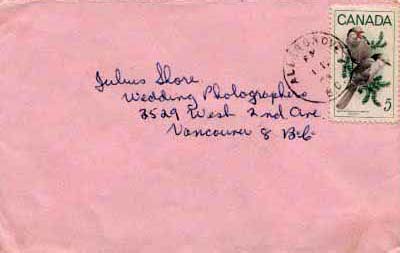 CANADA
Julius Shore
Wedding Photographers
3529 West 2nd Ave
Vancouver 8 B.C.
5